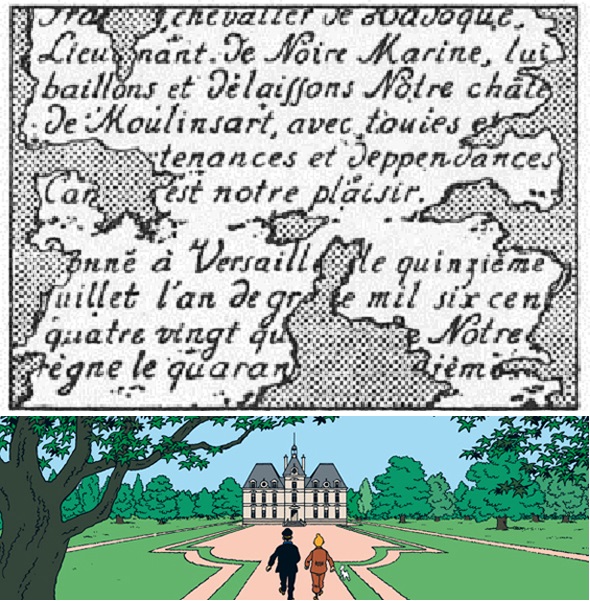 Fra chevalier de Hadoque,
Lieu nant. de Noire Marine, lui
baillons et délaissons Notre châte
de Moulinsart, avec, touies et
tenances et deppendances
Can est notre plaisir.
onné à Versaill le quinzième
juillet l'an de gr e mil six cen
quatre vingt qu e Notre
règne le quaran ième